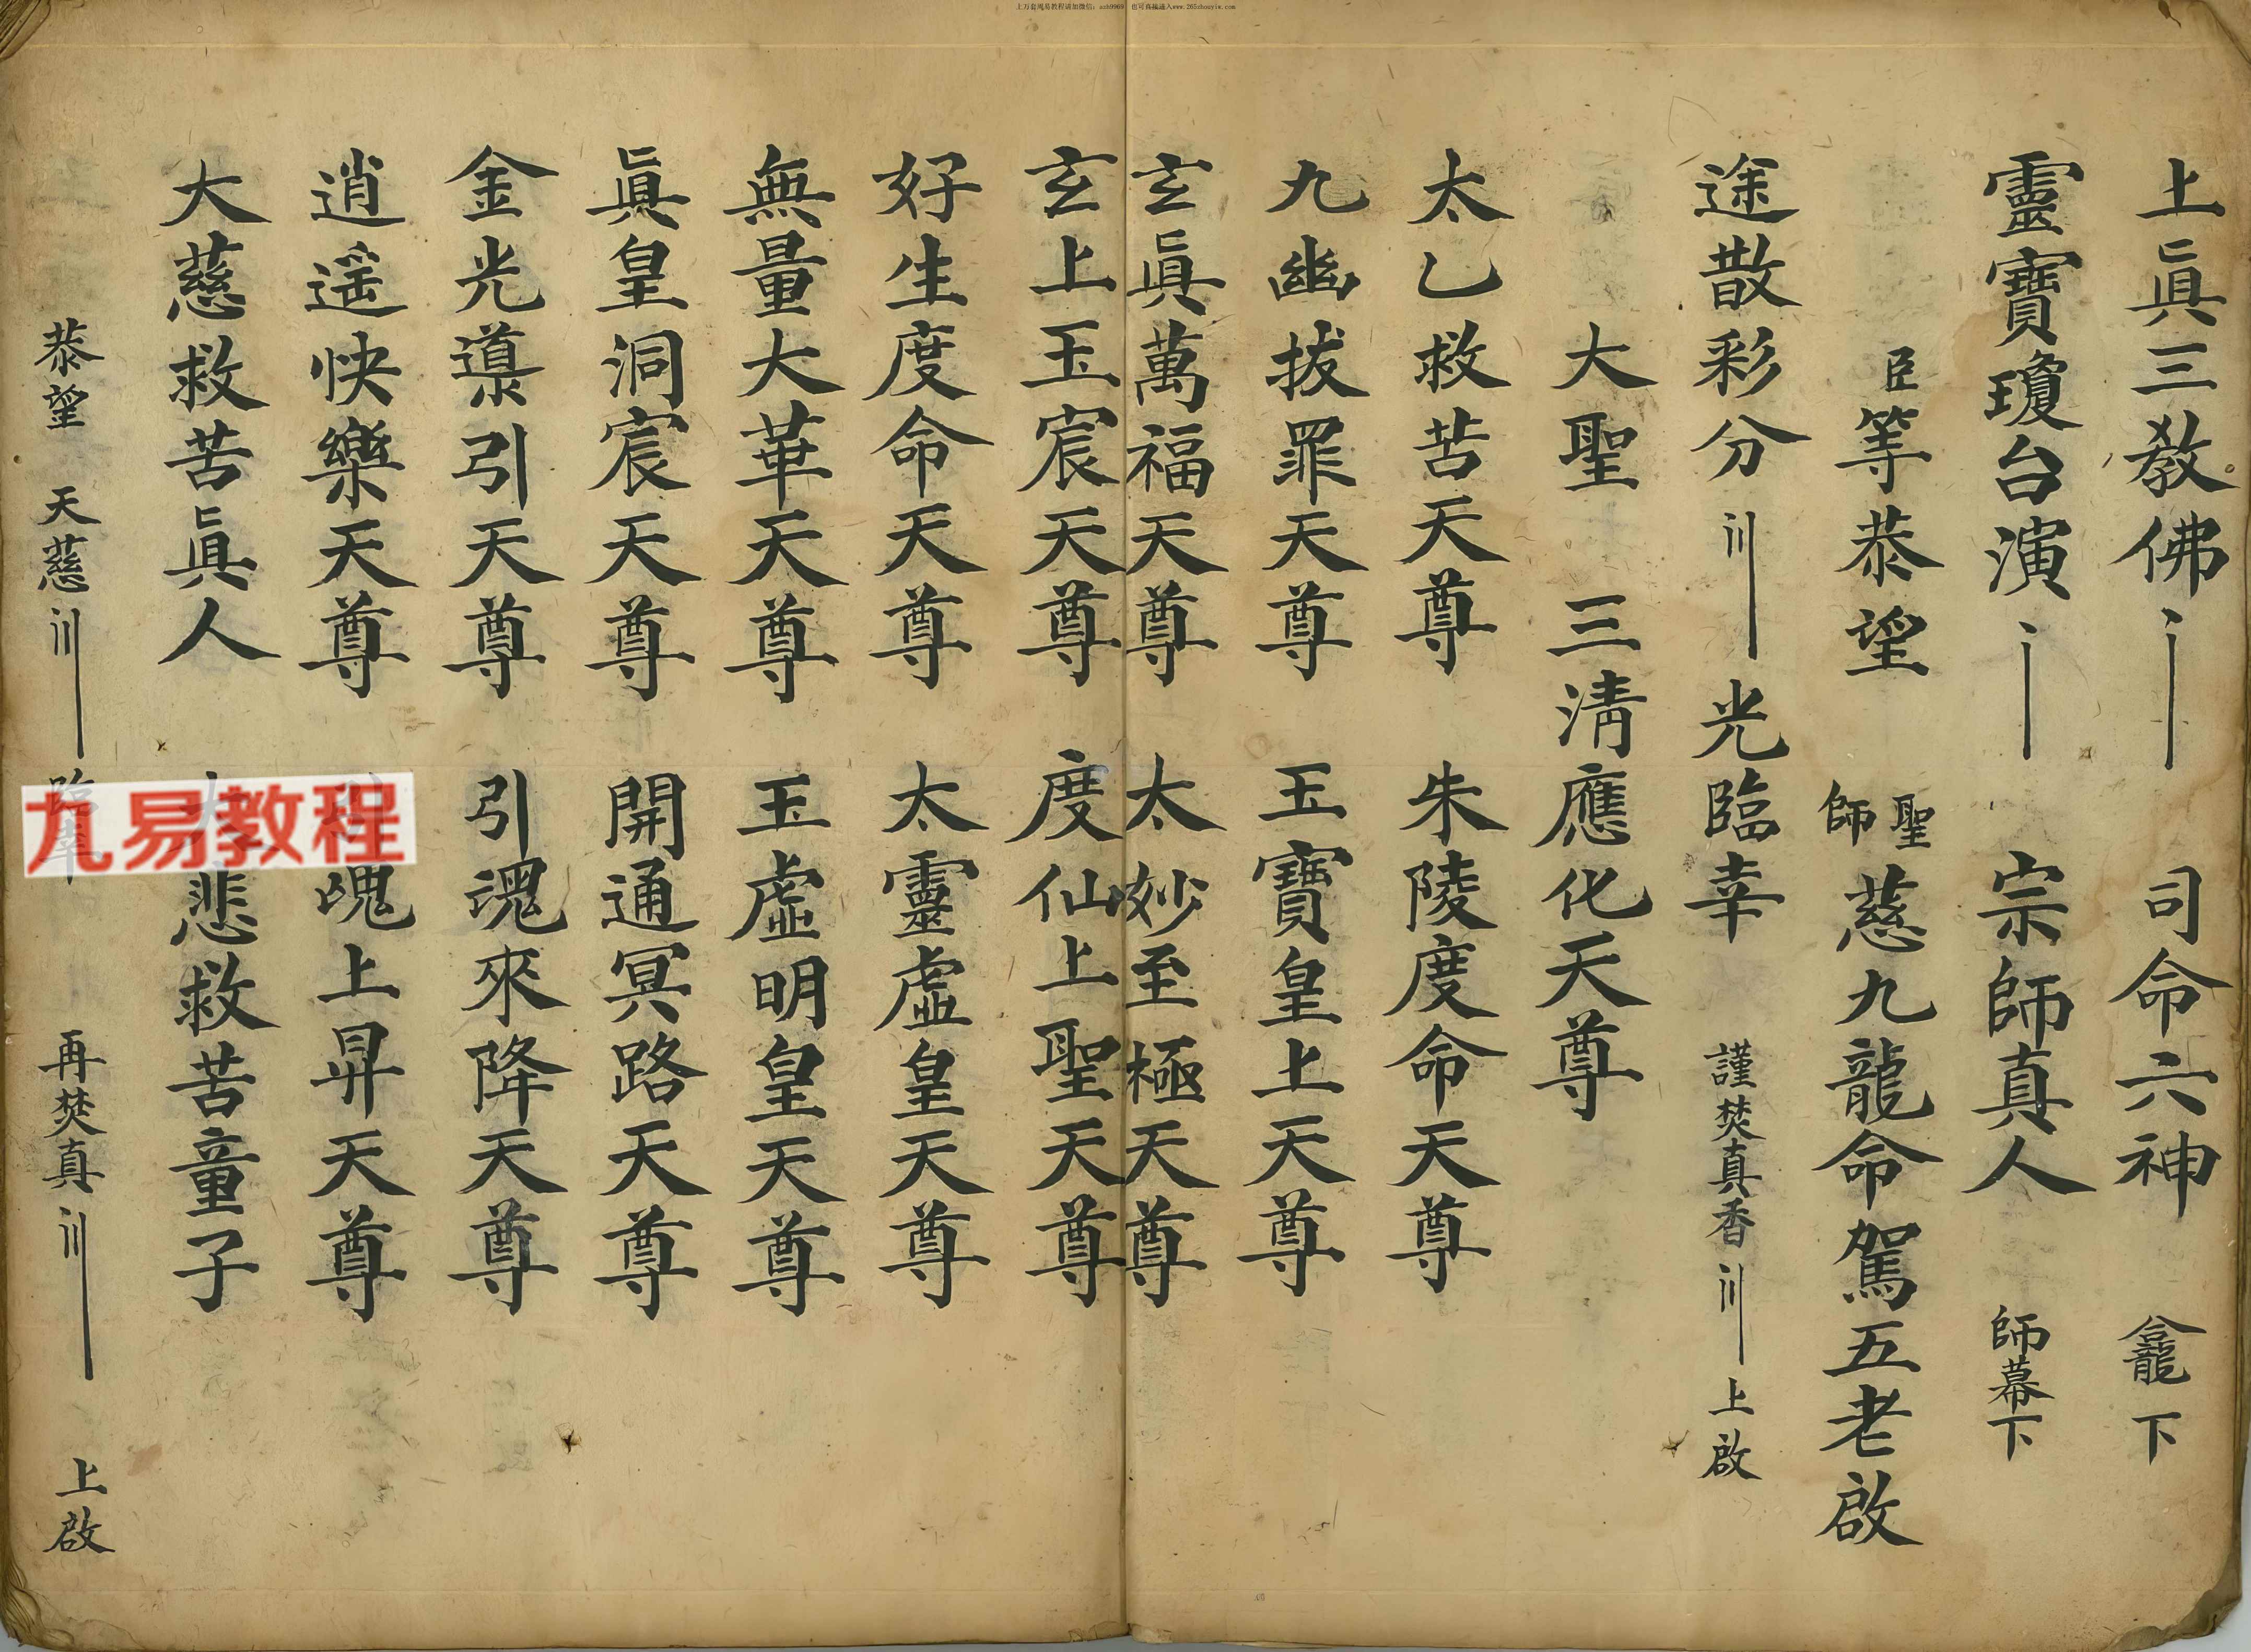 上万套周易教程请加微信：azh9969 也可直接进入www.265zhouyiw.com
上眞三教佛 司命六神 龕下
靈寶瓊台演 宗師真人 師幕下
臣等恭望 聖師慈九龍命駕五老啟
途散彩分 光臨幸 謹焚真香 上啟
大聖 三清應化天尊
太乙救苦天尊 朱陵度命天尊
九幽拔罪天尊 玉寶皇上天尊
玄眞萬福天尊 太妙至極天尊
玄上玉宸天尊 度仙上聖天尊
好生度命天尊 太靈虛皇天尊
無量大華天尊 玉虛明皇天尊
眞皇洞宸天尊 開通冥路天尊
金光導引天尊 引魂來降天尊
逍遥快樂天尊 魂上昇天尊
大慈救苦眞人 大悲救苦童子
恭望 天慈 臨幸 再焚真 上啟
九易教程